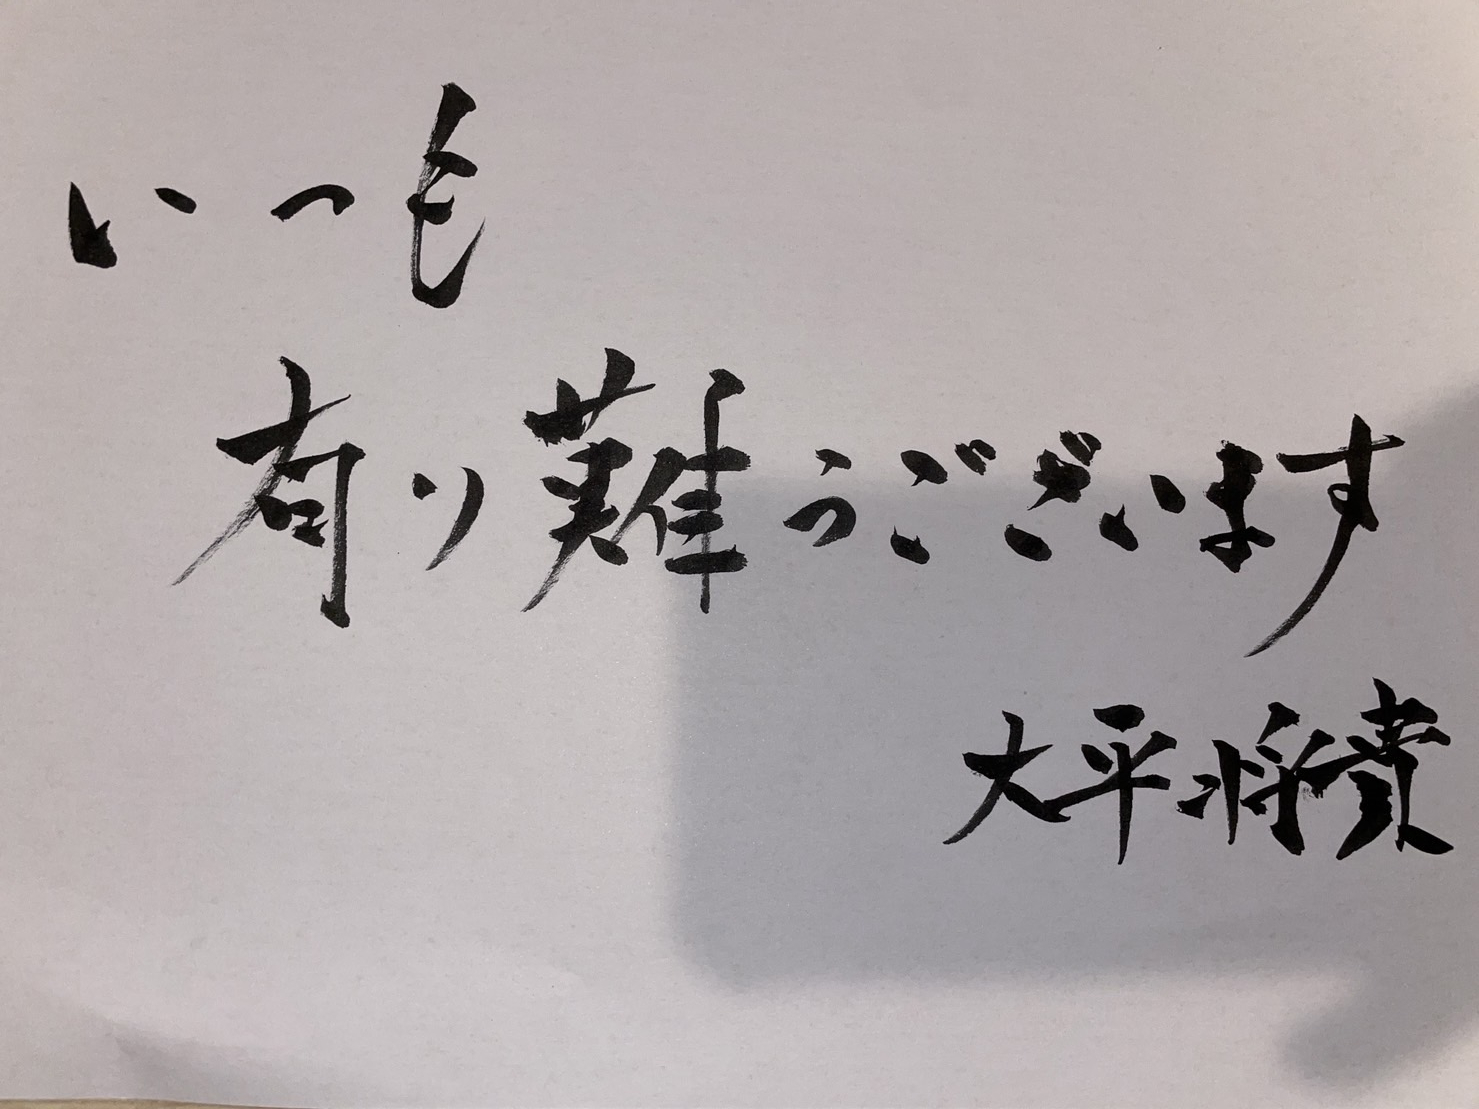 いつも
有り難うございます
大平将貴